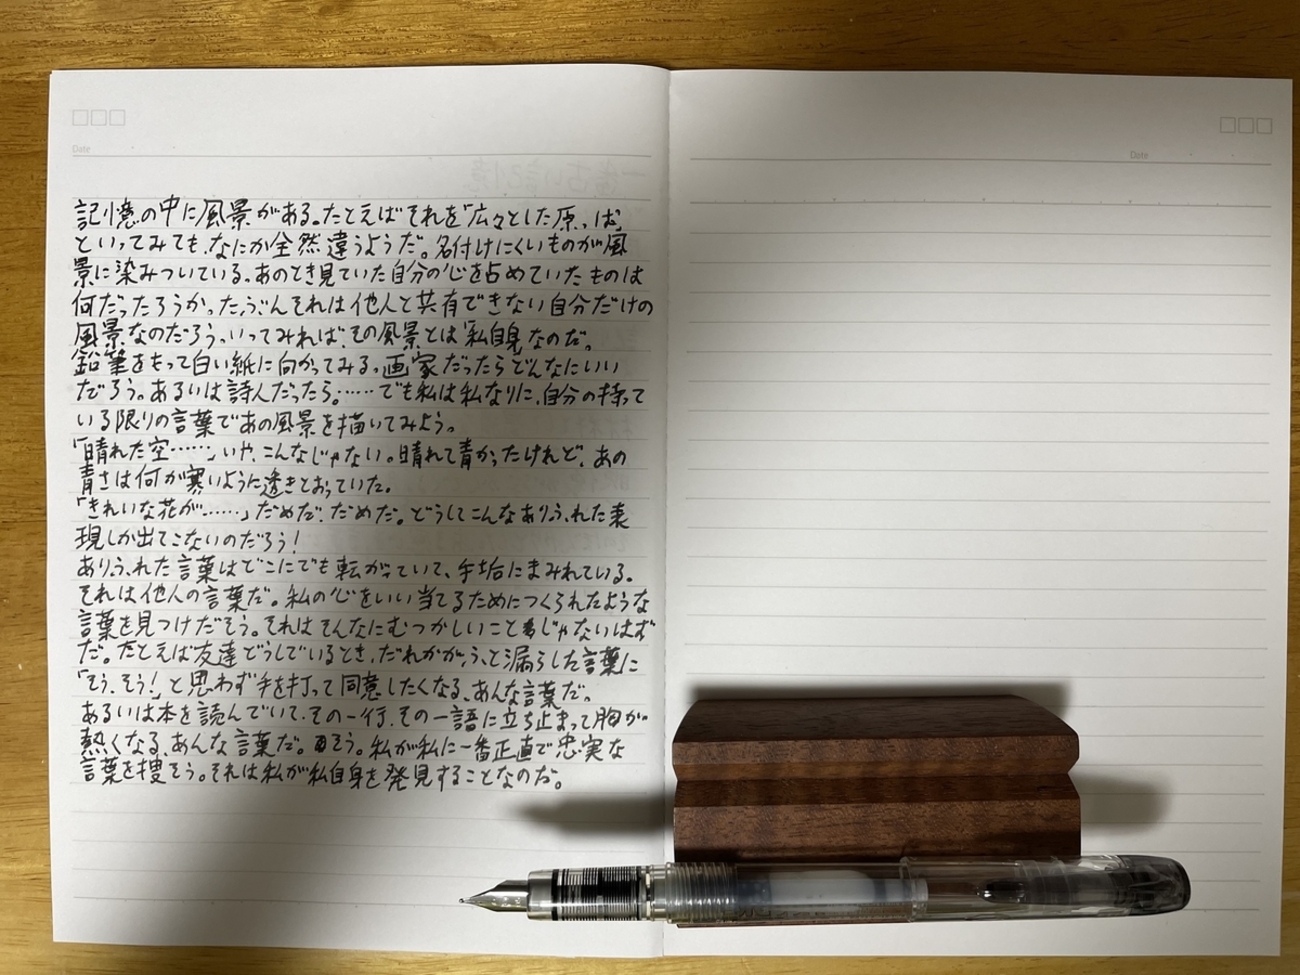 Date
Date
記憶の中に風景がある。たとえばそれを「広々とした原っぱ」
といってみても、なにか全然違うようだ。名付けにくいものが風
景に染みついている。あのとき見ていた自分の心を占めていたものは
何だったろうか。たぶんそれは他人と共有できない自分だけの
風景なのだろう。いってみれば、その風景とは「私自身」なのだ。
鉛筆をもって白い紙に向かってみる。画家だったらどんなにいい
だろう。あるいは詩人だったら。……でも私は私なりに、自分の持って
いる限りの言葉であの風景を描いてみよう。
「晴れた空……」いや、こんなじゃない。晴れて青かったけれど、あの
青さは何か寒いように透きとおっていた。
「きれいな花が……」だめだ、だめだ。どうしてこんなありふれた表
現しか出てこないのだろう！
ありふれた言葉はどこにでも転がっていて、手垢にまみれている。
それは他人の言葉だ。私の心をいい当てるためにつくられたような
言葉を見つけだそう。それはそんなにむつかしいことじゃないはず
だ。たとえば友達どうしでいるとき、だれかがふと漏らした言葉に
「そう、そう！」と思わず手を打って同意したくなる、あんな言葉だ。
あるいは本を読んでいて、その一行、その一語に立ち止まって胸が
熱くなる、あんな言葉だ。そう。私が私に一番正直で忠実な
言葉を捜そう。それは私が私自身を発見することなのだ。